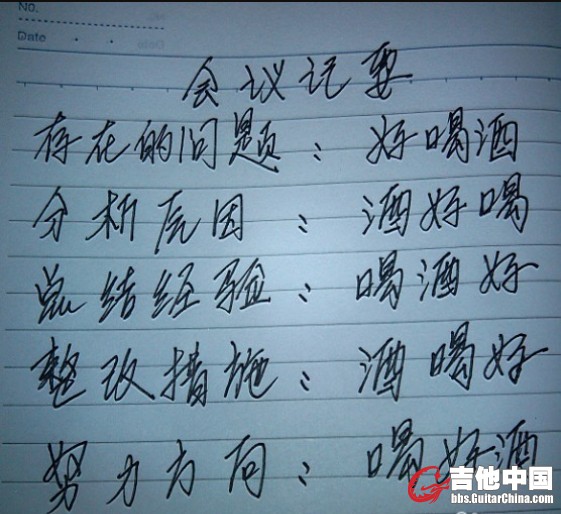 No.
Date
会议记要
存在的问题：好喝酒
分析原因：酒好喝
总结经验：喝酒好
整改措施：酒喝好
努力方向：喝好酒
吉他中国
bbs.GuitarChina.com